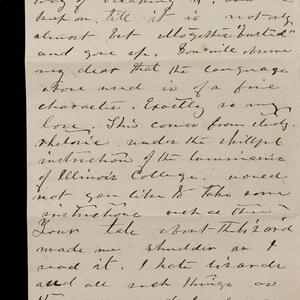 way of breaking it, and
keep on, till it is not only
almost but altogether "busted"
and gone up. You will observe
my dear that the language
above used is of a fine
character. Exactly so my
love. This comes from study-
rhetoric under the skillful
instruction of the luminaries
of Illinois College. would
not you like to take some
instructions such as them?
Your tale about the lizard
made me shudder as I
read it. I hate lizards
and all such things as